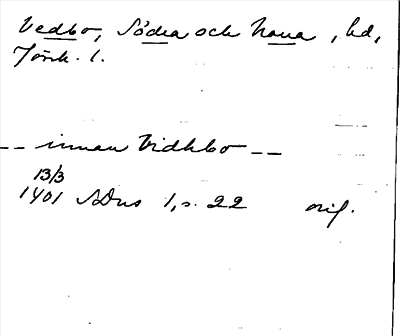 Vedbo, Södra och Norra, hd,
Jönk. l.
-- innan Vidhbo --
13/3
1401 SDns 1, s. 22 orig.